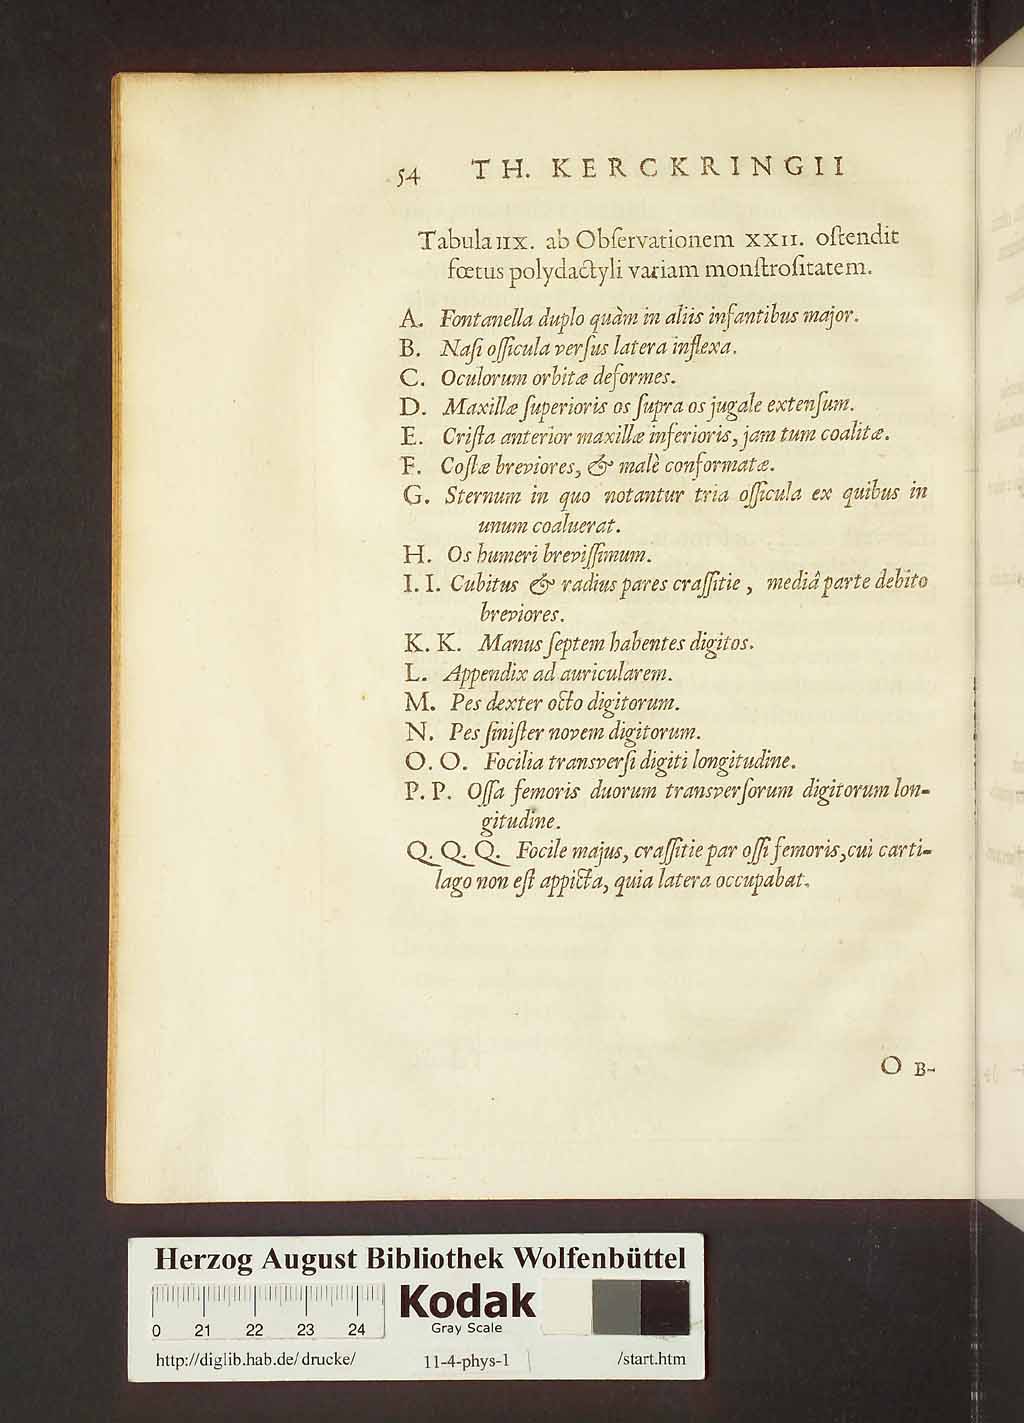 54 TH. KERCKRINGII
Tabula IIX. ab Obſervationem XXII. oſtendit
fœtus polydactyli variam monſtroſitatem.
A. Fontanella duplo quàm in aliis infantibus major.
B. Naſi oſſicula verſus latera inflexa.
C. Oculorum orbitæ deformes.
D. Maxillæ ſuperioris os ſupra os jugale extenſum.
E. Criſta anterior maxillæ inferioris, jam tum coalitæ.
F. Coſtæ breviores, & malè conformatæ.
G. Sternum in quo notantur tria oſſicula ex quibus in
unum coaluerat.
H. Os humeri breviſſimum.
I. I. Cubitus & radius pares craſſitie, mediâ parte debito
breviores.
K. K. Manus ſeptem habentes digitos.
L. Appendix ad auricularem.
M. Pes dexter octo digitorum.
N. Pes ſiniſter novem digitorum.
O. O. Focilia transverſi digiti longitudine.
P. P. Oſſa femoris duorum transverſorum digitorum lon-
gitudine.
Q. Q. Q. Focile majus, craſſitie par oſſi femoris, cui carti-
lago non eſt appicta, quia latera occupabat.
OB-
Herzog August Bibliothek Wolfenbüttel
0 21 22 23 24
Kodak
Gray Scale
http://diglib.hab.de/drucke/ 11-4-phys-1 /start.htm